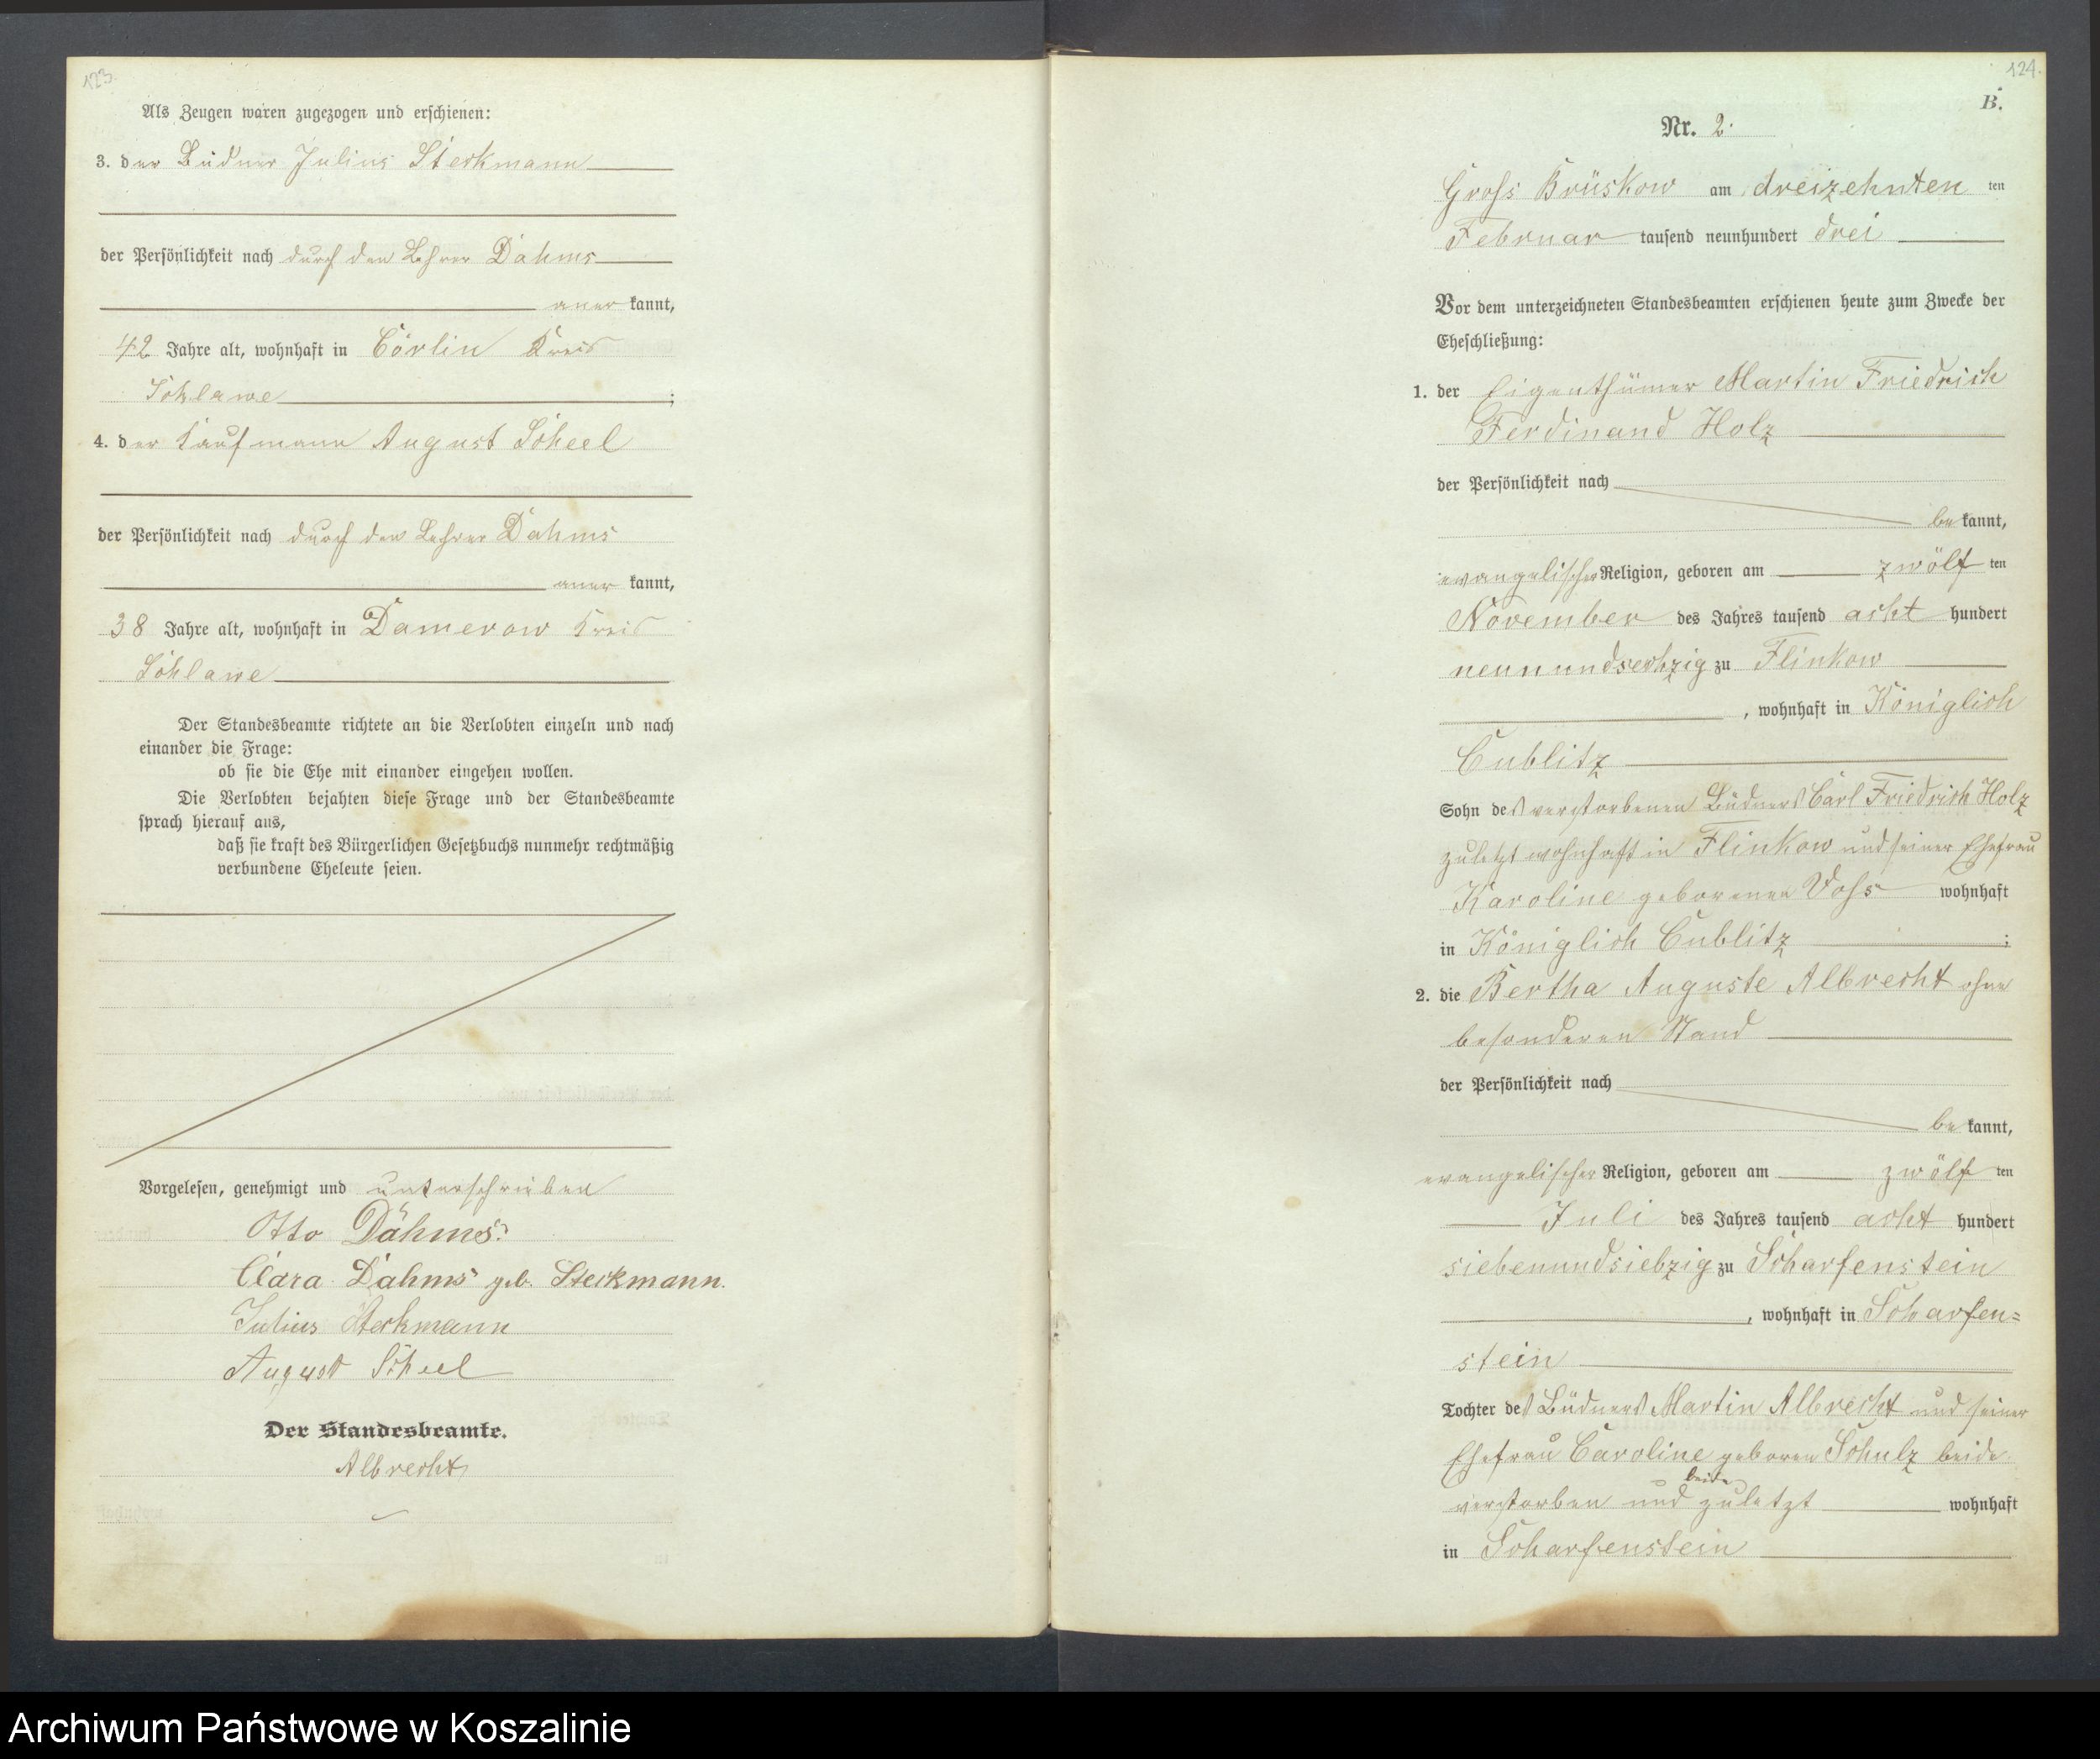 123.
Als Zeugen waren zugezogen und erschienen:
3. der Büdner Julius Steckmann
der Persönlichkeit nach durch den Lehrer Dahms
aner kannt,
42 Jahre alt, wohnhaft in Cörlin Kreis
Schlawe ;
4. der Kaufmann August Scheel
der Persönlichkeit nach durch den Lehrer Dahms
aner kannt,
38 Jahre alt, wohnhaft in Damerow Kreis
Schlawe
Der Standesbeamte richtete an die Verlobten einzeln und nach
einander die Frage:
ob sie die Ehe mit einander eingehen wollen.
Die Verlobten bejahten diese Frage und der Standesbeamte
sprach hierauf aus,
daß sie kraft des Bürgerlichen Gesetzbuchs nunmehr rechtmäßig
verbundene Eheleute seien.
Vorgelesen, genehmigt und unterschrieben
Otto Dahms.
Clara Dahms geb. Steckmann.
Julius Steckmann
August Scheel
Der Standesbeamte.
Albrecht
124.
B.
Nr. 2.
Gross Brüskow am dreizehnten ten
Februar tausend neunhundert drei
Vor dem unterzeichneten Standesbeamten erschienen heute zum Zwecke der
Eheschließung:
1. der Eigenthümer Martin Friedrich
Ferdinand Holz
der Persönlichkeit nach
be kannt,
evangelischer Religion, geboren am zwölf ten
November des Jahres tausend acht hundert
neunundsechzig zu Flinkow
, wohnhaft in Königlich
Cublitz
Sohn des verstorbenen Büdners Carl Friedrich Holz
zuletzt wohnhaft in Flinkow und seiner Ehefrau
Karoline geborenen Voss wohnhaft
in Königlich Cublitz ;
2. die Bertha Auguste Albrecht ohne
besonderen Stand
der Persönlichkeit nach
be kannt,
evangelischer Religion, geboren am zwölf ten
Juli des Jahres tausend acht hundert
siebenundsiebzig zu Scharfenstein
, wohnhaft in Scharfen=
stein
Tochter des Büdners Martin Albrecht und seiner
Ehefrau Caroline geboren Schulz beide
beide
verstorben und zuletzt wohnhaft
in Scharfenstein
Archiwum Państwowe w Koszalinie